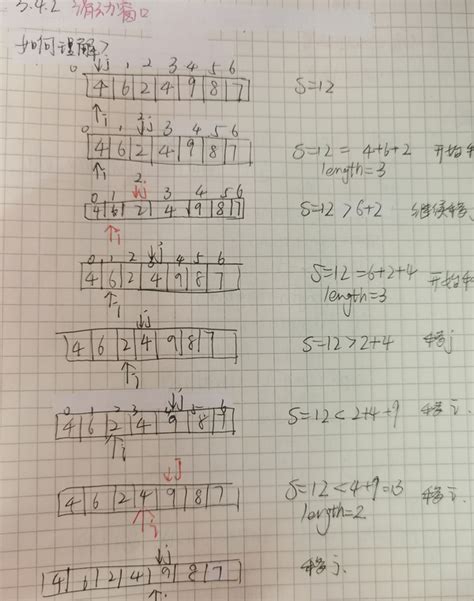 3.4.2 滑动窗口
如何理解?
0 ↓j 1 2 3 4 5 6
4 6 2 4 9 8 7 S=12
↑i
0 1 2 ↓j 3 4 5 6
4 6 2 4 9 8 7 S=12 = 4+6+2 开始
↑i length=3
0 1 2 ↓j 3 4 5 6
4 6 2 4 9 8 7 S=12 > 6+2 继续移
↑i
0 1 2 ↓j 3 4 5 6
4 6 2 4 9 8 7 S=12=6+2+4 开始
↑i length=3
↓j
4 6 2 4 9 8 7 S=12>2+4 移j
↑i
0 1 2 3 ↓j 5 6
4 6 2 4 9 8 7 S=12<2+4+9 移i
↑i
↓j
4 6 2 4 9 8 7 S=12<4+9=13 移i
↑i length=2
↓j
4 6 2 4 9 8 7 移j
↑i